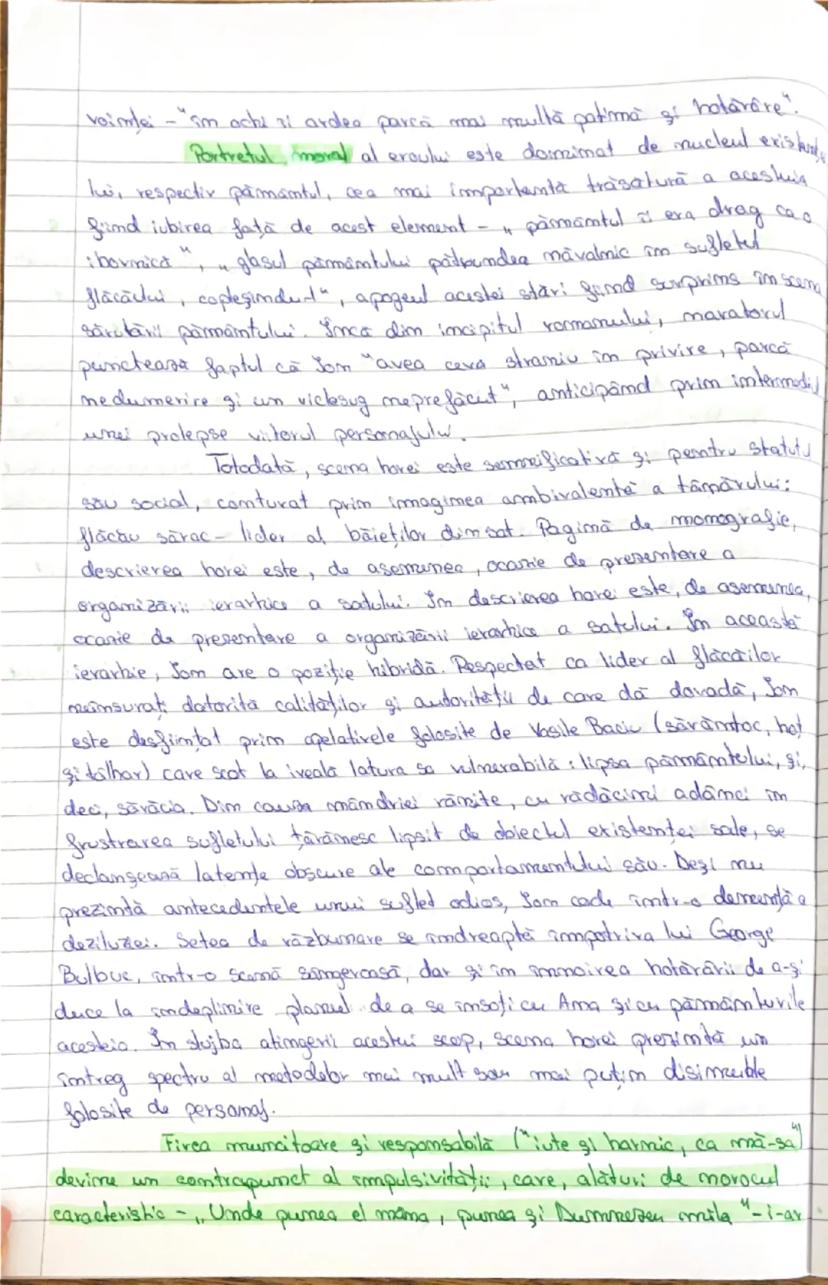 voinței – "în ochi îi ardea parcă mai multă patimă și hotărâre".
Portretul moral al eroului este dominat de nucleul existenței
lui, respectiv pământul, cea mai importantă trăsătură a acestuia
fiind iubirea față de acest element – „pământul îi era drag ca o
ibovnică", „glasul pământului pătrundea năvalnic în sufletul
flăcăului, copleșindu-l", apogeul acestei stări fiind surprins în scena
sărutării pământului. Încă din incipitul romanului, naratorul
punctează faptul că Ion "avea ceva straniu în privire, parcă
nedumerire și un vicleșug neprefăcut", anticipând prin intermediul
unei prolepse viitorul personajului.
Totodată, scena horei este semnificativă și pentru statutul
său social, conturat prin imaginea ambivalentă a tânărului:
flăcău sărac – lider al băieților din sat. Pagină de monografie,
descrierea horei este, de asemenea, ocazie de prezentare a
organizării ierarhice a satului. În descrierea horei este, de asemenea,
ocazie de prezentare a organizării ierarhice a satului. În această
ierarhie, Ion are o poziție hibridă. Respectat ca lider al flăcăilor
neînsurați datorită calităților și autorității de care dă dovadă, Ion
este desființat prin apelativele folosite de Vasile Baciu (sărăntoc, hoț
și tâlhar) care scot la iveală latura sa vulnerabilă: lipsa pământului, și,
deci, sărăcia. Din cauza mândriei rănite, cu rădăcini adânci în
frustrarea sufletului țărănesc lipsit de obiectul existenței sale, se
declanșează latențe obscure ale comportamentului său. Deși nu
prezintă antecedentele unui suflet odios, Ion cade într-o demență a
deziluziei. Setea de răzbunare se îndreaptă împotriva lui George
Bulbuc, într-o scenă sângeroasă, dar și în înnoirea hotărârii de a-și
duce la îndeplinire planul de a se însoți cu Ana și cu pământurile
acesteia. În slujba atingerii acestui scop, scena horei prezintă un
întreg spectru al metodelor mai mult sau mai puțin disimulate
folosite de personaj.
Firea muncitoare și responsabilă ("iute și harnic, ca mă-sa")
devine un contrapunct al impulsivității, care, alături de norocul
caracteristic – „Unde punea el mâna, punea și Dumnezeu mila" – i-ar